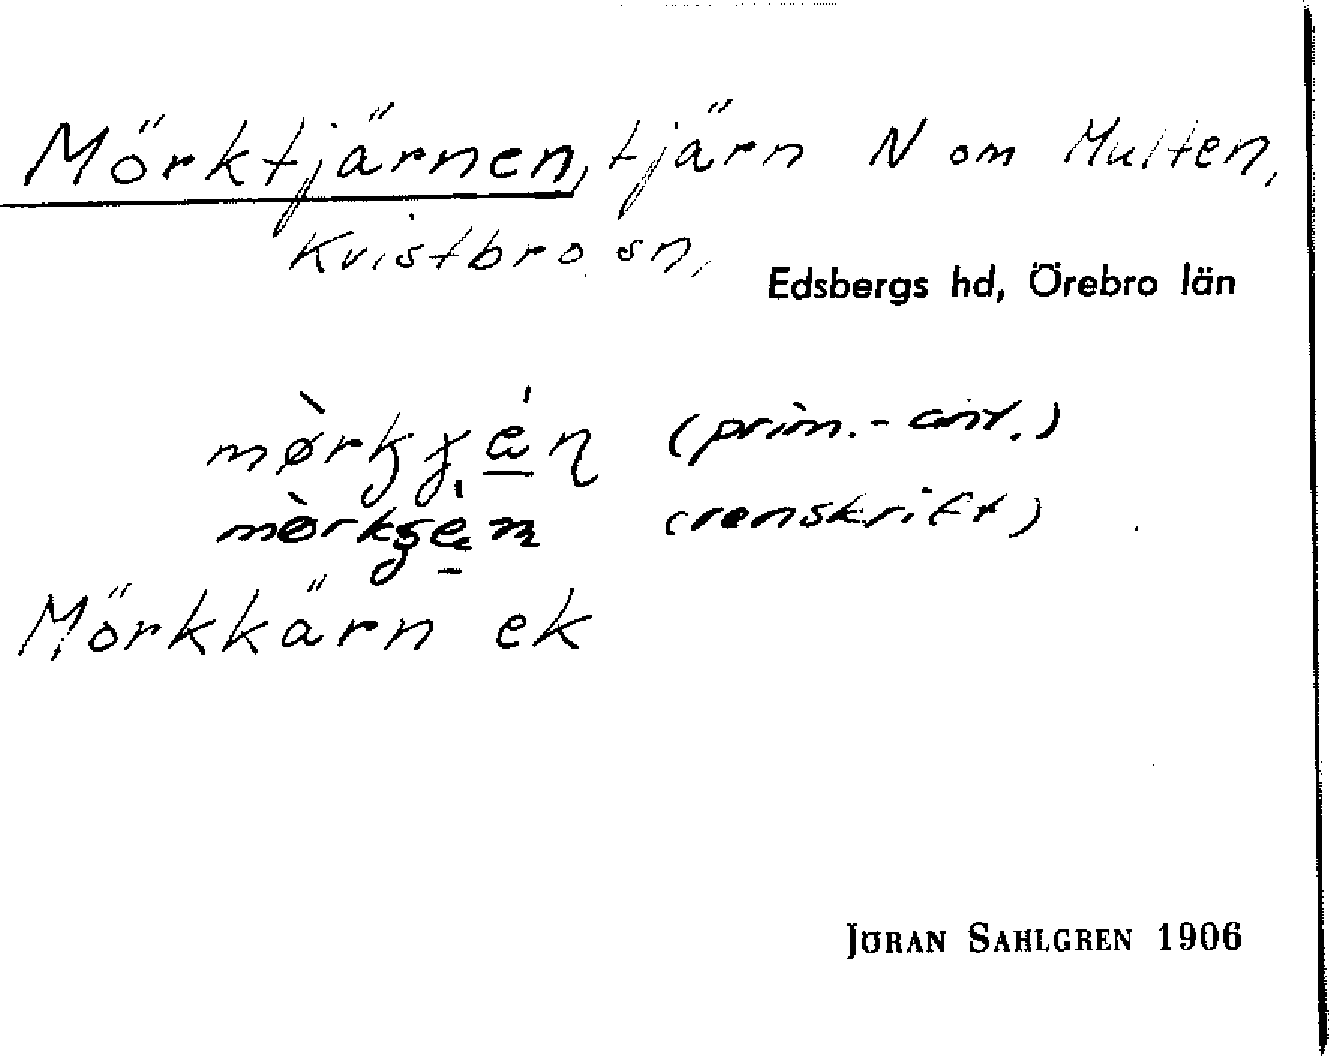 Mörktjärnen, tjärn N om Multen,
Kvistbro sn,
Edsbergs hd, Örebro län
(prim.-ant.)
(renskrift)
Mörkkärn ek
JÖRAN SAHLGREN 1906